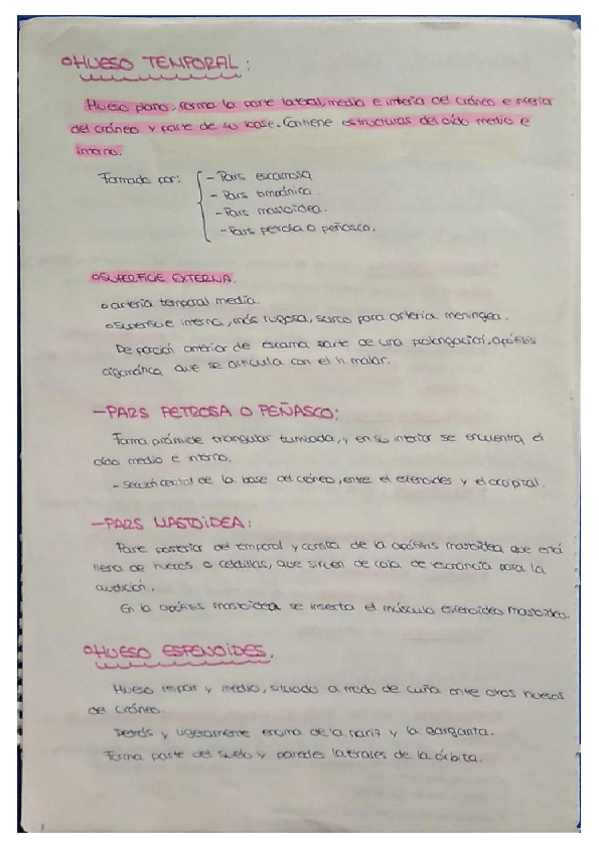 HUESO TEMPORAL:
Hueso plano, forma la parte lateral, media e inferior del cráneo e inferior
del cráneo y parte de su base. Contiene estructuras del oído medio e
interno.
Formado por:
- Pars escamosa
- Pars timpánica.
- Pars mastoidea.
- Pars petrosa o peñasco.
SUPERFICIE EXTERNA.
arteria temporal media.
superficie interna, más rugosa, surco para arteria meníngea.
De porción anterior de escama parte de una prolongación, apófisis
cigomática que se articula con el h. malar.
-PARS PETROSA O PEÑASCO:
Forma pirámide triangular tumbada, y en su interior se encuentra el
oído medio e interno.
- Sección central de la base del cráneo, entre el esfenoides y el occipital.
-PARS MASTOIDEA:
Parte posterior del temporal y consta de la apófisis mastoidea que está
llena de huecos o celdillas, que sirven de caja de resonancia para la
audición.
En la apófisis mastoidea se inserta el músculo esternoideo mastoideo.
HUESO ESFENOIDES.
Hueso impar y medio, situado a modo de cuña entre otros huesos
del cráneo.
Detrás y ligeramente encima de la nariz y la garganta.
Forma parte del suelo y paredes laterales de la órbita.